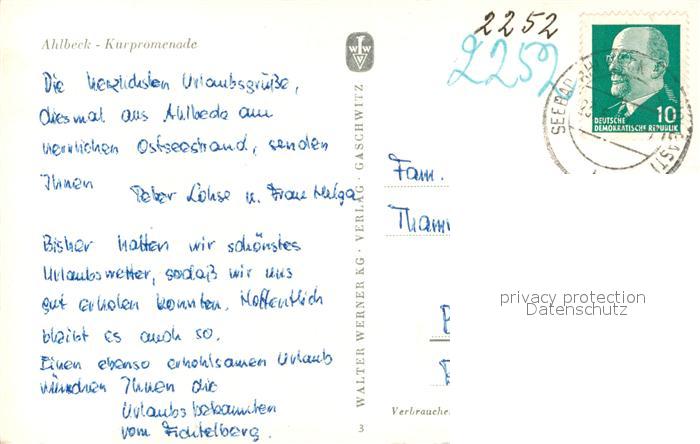 Ahlbeck - Kurpromenade
Die herzlichsten Urlaubsgrüße,
diesmal aus Ahlbeck am
herrlichen Ostseestrand, senden
Ihnen
Peter Lohse u. Frau Helga
Bisher hatten wir schönstes
Urlaubswetter, sodaß wir uns
gut erholen konnten. Hoffentlich
bleibt es auch so.
Einen ebenso erholsamen Urlaub
wünschen Ihnen die
Urlaubsbekannten
vom Fichtelberg.
WALTER WERNER KG · VERLAG · GASCHWITZ
3
2252
2252
SEEBAD
10
DEUTSCHE
DEMOKRATISCHE REPUBLIK
Fam.
Tham
privacy protection
Datenschutz
Verbrauche